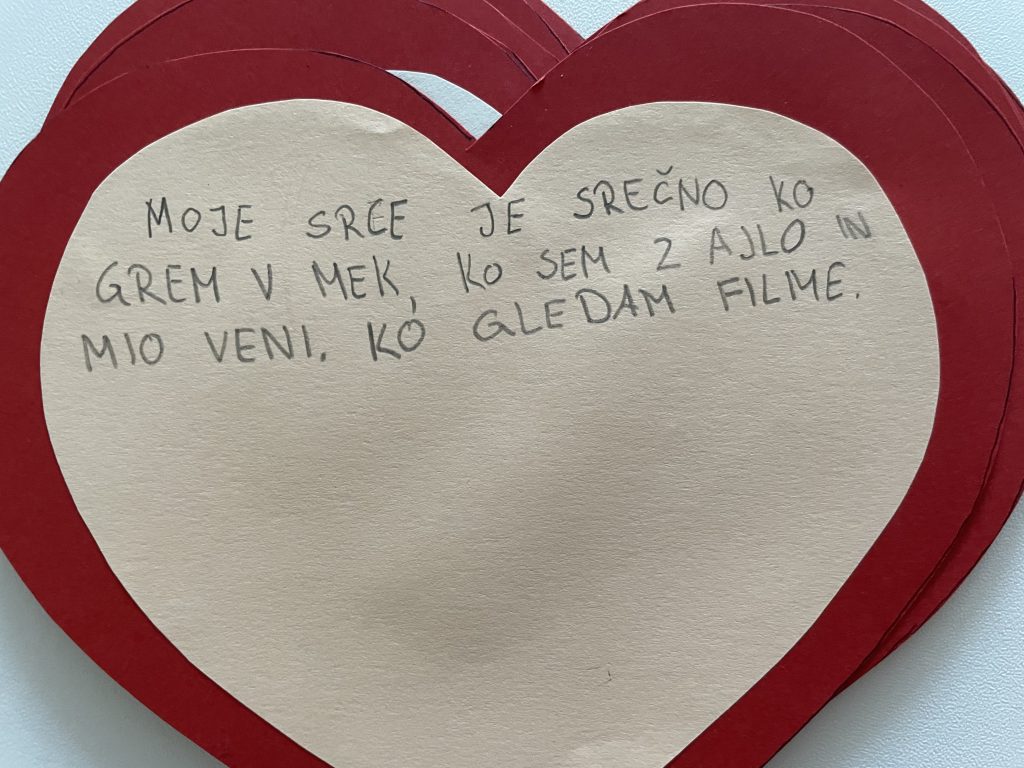 MOJE SRCE JE SREČNO KO
GREM V MEK, KO SEM Z AJLO IN
MIO VENI. KO GLEDAM FILME.